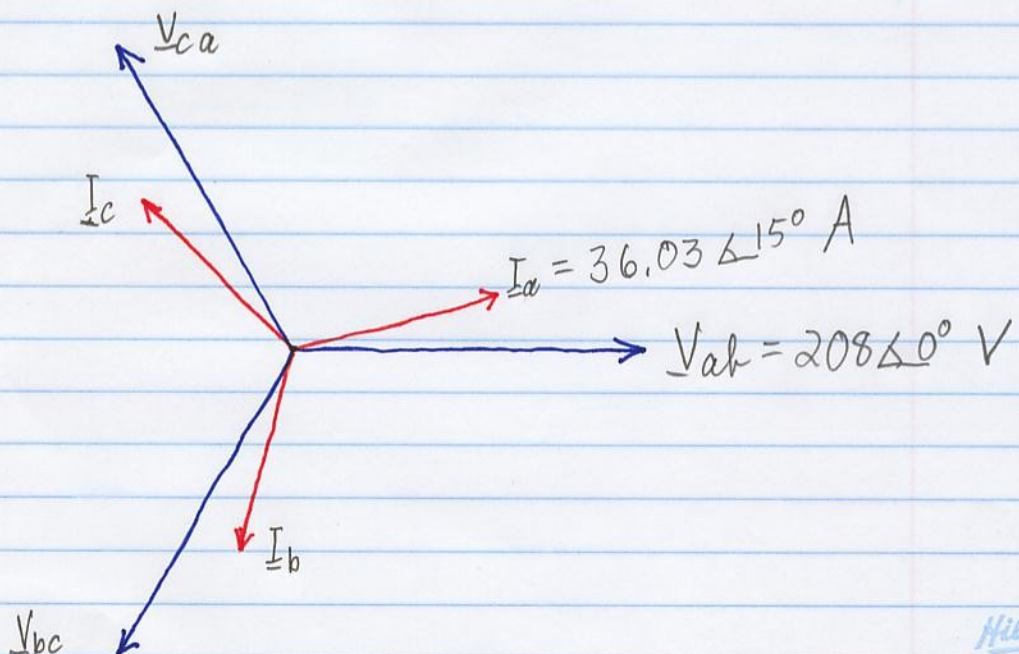 V̲ca
I̲c
I̲a = 36.03 ∠15° A
V̲ab = 208∠0° V
I̲b
V̲bc